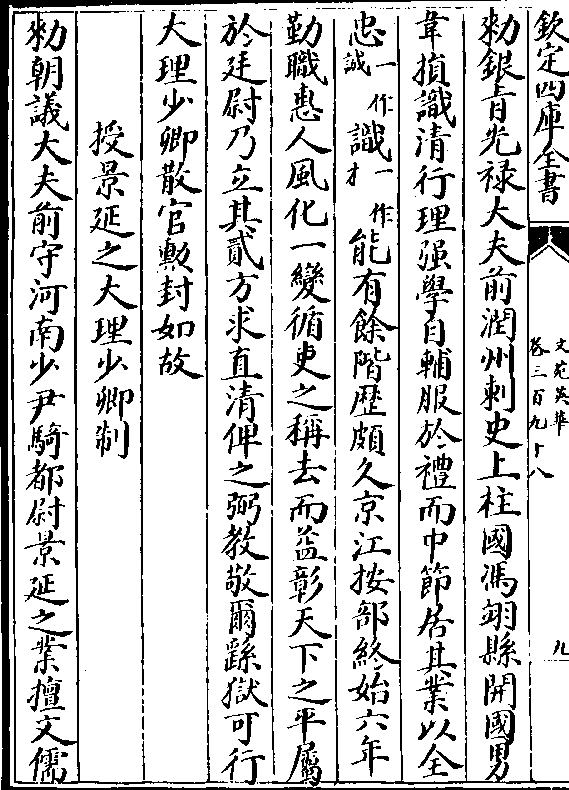 欽定四庫全書
文苑英華
卷三百九十八
九
勑銀青光禄大夫前潤州刺史上柱國馮翊縣開國男
韋損識清行理强學自輔服於禮而中節居其業以全
忠一作誠識一作才能有餘階歴頗久京江按部終始六年
勤職惠人風化一變循吏之稱去而益彰天下之平屬
於廷尉乃立其貳方求直清俾之弼教敬爾繇獄可行
大理少卿散官勲封如故
授景延之大理少卿制
勑朝議大夫前守河南少尹騎都尉景延之業擅文儒